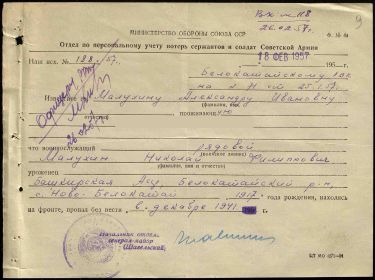 Вх. № 118
26.02.57г.
9
МИНИСТЕРСТВО ОБОРОНЫ СОЮЗА ССР
Ф. №
Отдел по персональному учету потерь сержантов и солдат Советской Армии
Наш исх. № 188 /57г.
18 ФЕВ 1957
195 г.
Белокатайскому РВК
на № от 25.1.57г.
Малухину Александру Ивановичу
(фамилия, имя
и отчество)
проживающему
что военнослужащий рядовой
(воинское звание)
Малухин Николай Филиппович
(фамилия, имя и отчество)
уроженец
Башкирская АССР, Белокатайский р-н,
с. Ново-Белокатай 1917 года рождения, находясь
на фронте, пропал без вести в декабре 1941 г.
Начальник отдела
генерал-майор
(Шавельский)